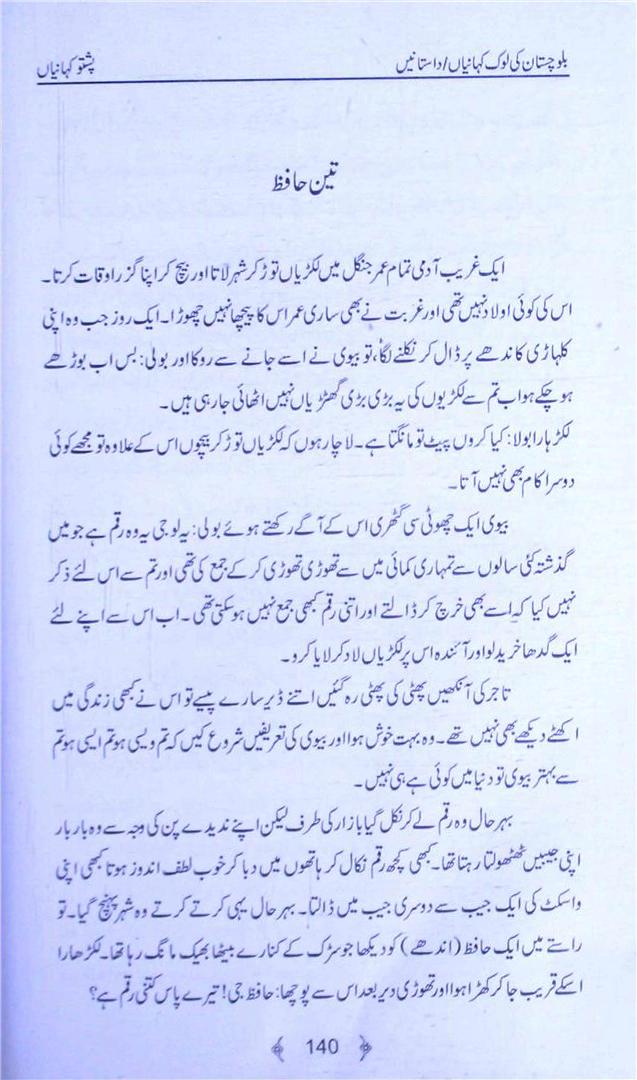 بلوچستان کی لوک کہانیاں/داستانیں
پشتو کہانیاں
تین حافظ
ایک غریب آدمی تمام عمر جنگل میں لکڑیاں توڑ کر شہر لاتا اور بیچ کر اپنا گزر اوقات کرتا۔
اس کی کوئی اولاد نہیں تھی اور غربت نے بھی ساری عمر اس کا پیچھا نہیں چھوڑا۔ ایک روز جب وہ اپنی
کلہاڑی کاندھے پر ڈال کر نکلنے لگا، تو بیوی نے اسے جانے سے روکا اور بولی: بس اب بوڑھے
ہو چکے ہو اب تم سے لکڑیوں کی یہ بڑی بڑی گھڑیاں نہیں اٹھائی جا رہی ہیں۔
لکڑہارا بولا: کیا کروں پیٹ تو مانگتا ہے۔ لاچار ہوں کہ لکڑیاں توڑ کر بیچوں اس کے علاوہ تو مجھے کوئی
دوسرا کام بھی نہیں آتا۔
بیوی ایک چھوٹی سی گٹھری اس کے آگے رکھتے ہوئے بولی: یہ لو جی یہ وہ رقم ہے جو میں
گذشتہ کئی سالوں سے تمہاری کمائی میں سے تھوڑی تھوڑی کر کے جمع کی تھی اور تم سے اس لئے ذکر
نہیں کیا کہ اسے بھی خرچ کر ڈالتے اور اتنی رقم کبھی جمع نہیں ہو سکتی تھی۔ اب اس سے اپنے لئے
ایک گدھا خرید لو اور آئندہ اس پر لکڑیاں لاد کر لایا کرو۔
تاجر کی آنکھیں پھٹی کی پھٹی رہ گئیں اتنے ڈیر سارے پیسے تو اس نے کبھی زندگی میں
اکھٹے دیکھے بھی نہیں تھے۔ وہ بہت خوش ہوا اور بیوی کی تعریفیں شروع کیں کہ تم ویسی ہو تم ایسی ہو تم
سے بہتر بیوی تو دنیا میں کوئی ہے ہی نہیں۔
بہرحال وہ رقم لے کر نکل گیا بازار کی طرف لیکن اپنے ندیدے پن کی وجہ سے وہ بار بار
اپنی جیبیں ٹھٹھولتا رہتا تھا۔ کبھی کچھ رقم نکال کر ہاتھوں میں دبا کر خوب لطف اندوز ہوتا کبھی اپنی
واسکٹ کی ایک جیب سے دوسری جیب میں ڈالتا۔ بہرحال یہی کرتے کرتے وہ شہر پہنچ گیا۔ تو
راستے میں ایک حافظ (اندھے) کو دیکھا جو سڑک کے کنارے بیٹھا بھیک مانگ رہا تھا۔ لکڑھارا
اسکے قریب جا کر کھڑا ہوا اور تھوڑی دیر بعد اس سے پوچھا: حافظ جی! تیرے پاس کتنی رقم ہے؟
140